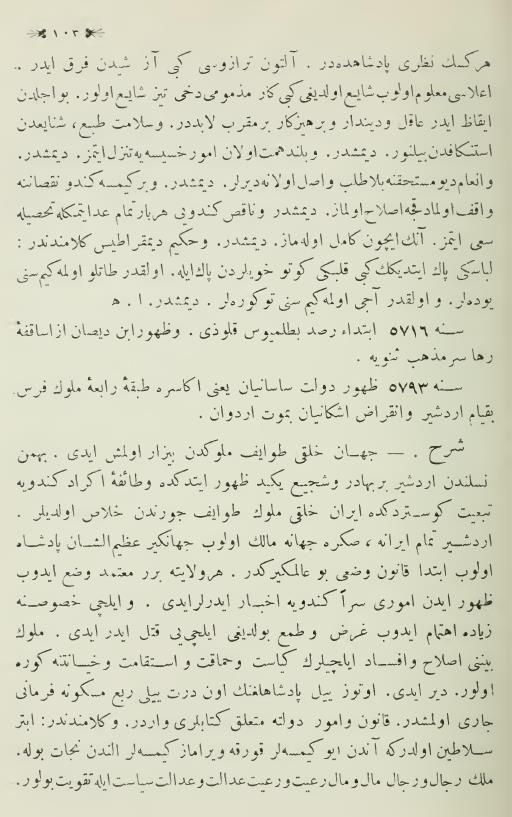 ١٠٣
هركسك نظرى پادشاهده‌در . آلتون ترازوسى كبى آز شيدن فرق ايدر ..
اعلاسى معلوم اولوب شايع اولديغى كبى كار مذمومى دخى تيز شايع اولور. بو اجلدن
ايقاظ ايدر عاقل و ديندار و پرهيزكار بر مقرب لابددر. وسلامت طبع ، شنايعدن
استنكافدن بيلنور. ديمشدر. وبلند همت اولان امور خسيسه‌يه تنزل ايتمز. ديمشدر.
وانعام ديو مستحقنه بلا طلب واصل اولانه ديرلر. ديمشدر. وبر كيمسه كندو نقصاننه
واقف اولمادقجه اصلاح اولماز. ديمشدر وناقص كندويى هربار تمام عد ايتمكله تحصيله
سعى ايتمز. آنك ايچون كامل اوله‌ماز. ديمشدر. وحكيم ديمقراطيس كلامندندر :
لباسكى پاك ايتديكك كبى قلبكى كوتو خويلردن پاك ايله. اولقدر طاتلو اولمه كيم سنى
يوده‌لر. و اولقدر آجى اولمه كيم سنى توكوره‌لر . ديمشدر. ا . ه
سنه ٥٧١٦ ابتداء رصد بطلميوس قلوذى . وظهور ابن ديصان از اساقفهٔ
رها سر مذهب ثنويه .
سنه ٥٧٩٣ ظهور دولت ساسانيان يعنى اكاسره طبقهٔ رابعهٔ ملوك فرس.
بقيام اردشير وانقراض اشكانيان بموت اردوان .
شرح . — جهان خلقى طوايف ملوكدن بيزار اولمش ايدى . بهمن
نسلندن اردشير بر بهادر وشجيع يكيد ظهور ايتدكده وطائفهٔ اكراد كندويه
تبعيت كوستردكده ايران خلقى ملوك طوايف جورندن خلاص اولديلر .
اردشير تمام ايرانه ، صكره جهانه مالك اولوب جهانكير عظيم الشان پادشاه
اولوب ابتدا قانون وضعى بو عالمكيركدر . هر ولايته برر معتمد وضع ايدوب
ظهور ايدن امورى سراً كندويه اخبار ايدرلر ايدى . و ايلچى خصوصنه
زياده اهتمام ايدوب غرض وطمع بولديغى ايلچى‌يى قتل ايدر ايدى . ملوك
بيننى اصلاح وافساد ايلچيلرك كياست وحماقت و استقامت وخيانتنه كوره
اولور. دير ايدى. اوتوز ييل پادشاهلغنك اون درت ييلى ربع مسكونه فرمانى
جارى اولمشدر. قانون وامور دولته متعلق كتابلرى واردر. وكلامندندر: ابتر
سلاطين اولدركه آندن ايو كيمسه‌لر قورقه ويراماز كيمسه‌لر الندن نجات بوله.
ملك رجال ورجال مال ومال رعيت ورعيت عدالت وعدالت سياست ايله تقويت بولور.